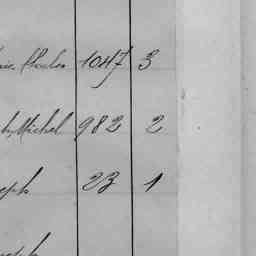 Charles 1047 3
Michel 982 2
seph 23 1
seph